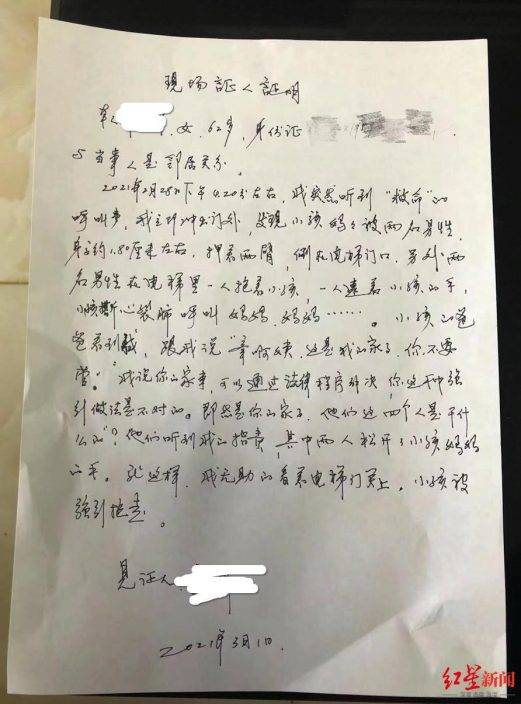 現场証人証明
女,62岁,身份证
与当事人是邻居关系。
2021年2月28日下午4.20分左右,我突然听到"救命"的
呼叫声,我立即冲出门外,发现小孩妈妈被两名男性
身高约1.80厘米左右,押着两臂,倒在电梯门口,另外两
名男性在电梯里一人抱着小孩,一人逮着小孩的手,
小孩撕心裂肺呼叫妈妈,妈妈……。小孩的爸
爸看到我,跟我说"章阿姨,这是我的家事,你不要
管。"我说你的家事,可以通过法律程序解决,你这种强
引做法是不对的。即然是你的家事,他们这四个人是干什
么的"?他们听到我的指责,其中两人松开了小孩妈妈
的手。就这样,我无助的看着电梯门关上。小孩被
强引抱走。
见证人
2021年3月1日.
红星新闻